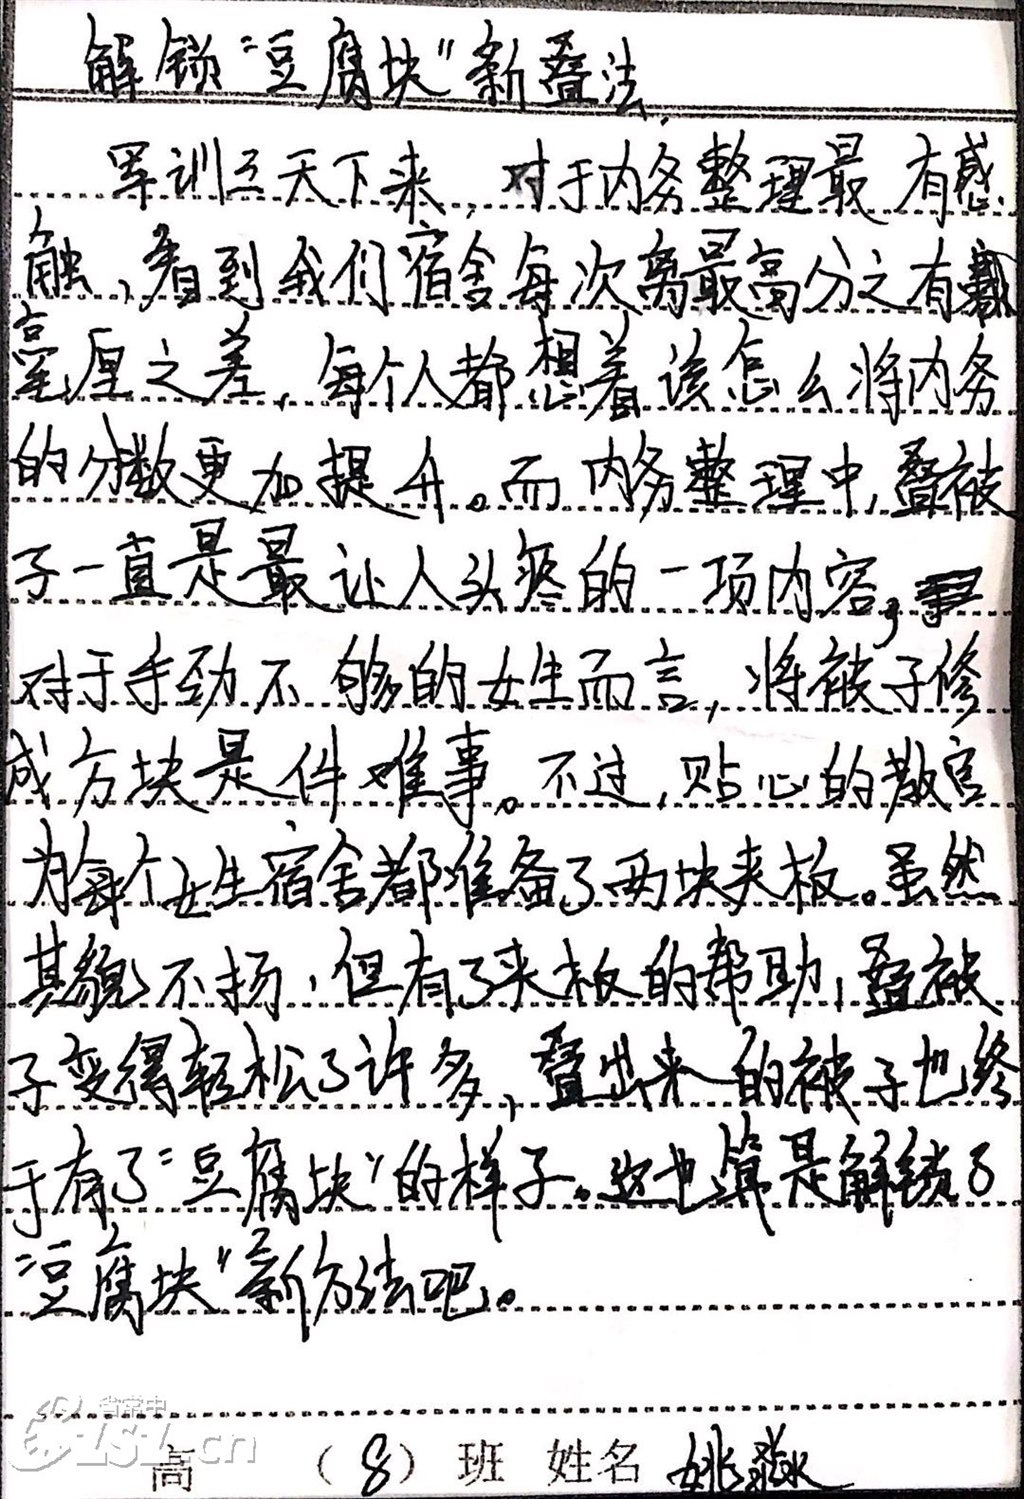 解锁“豆腐块”新叠法
军训三天下来，对于内务整理最有感
触，看到我们宿舍每次离最高分之有
毫厘之差，每个人都想着该怎么将内务
的分数更加提升。而内务整理中，叠被
子一直是最让人头疼的一项内容，
对于手劲不够的女生而言，将被子修
成方块是件难事。不过，贴心的教官
为每个女生宿舍都准备了两块夹板。虽然
其貌不扬，但有了夹板的帮助，叠被
子变得轻松了许多，叠出来的被子也终
于有了“豆腐块”的样子。这也算是解锁了
“豆腐块”新方法吧。
省常中
zsz.cn
高 （8）班 姓名 姚